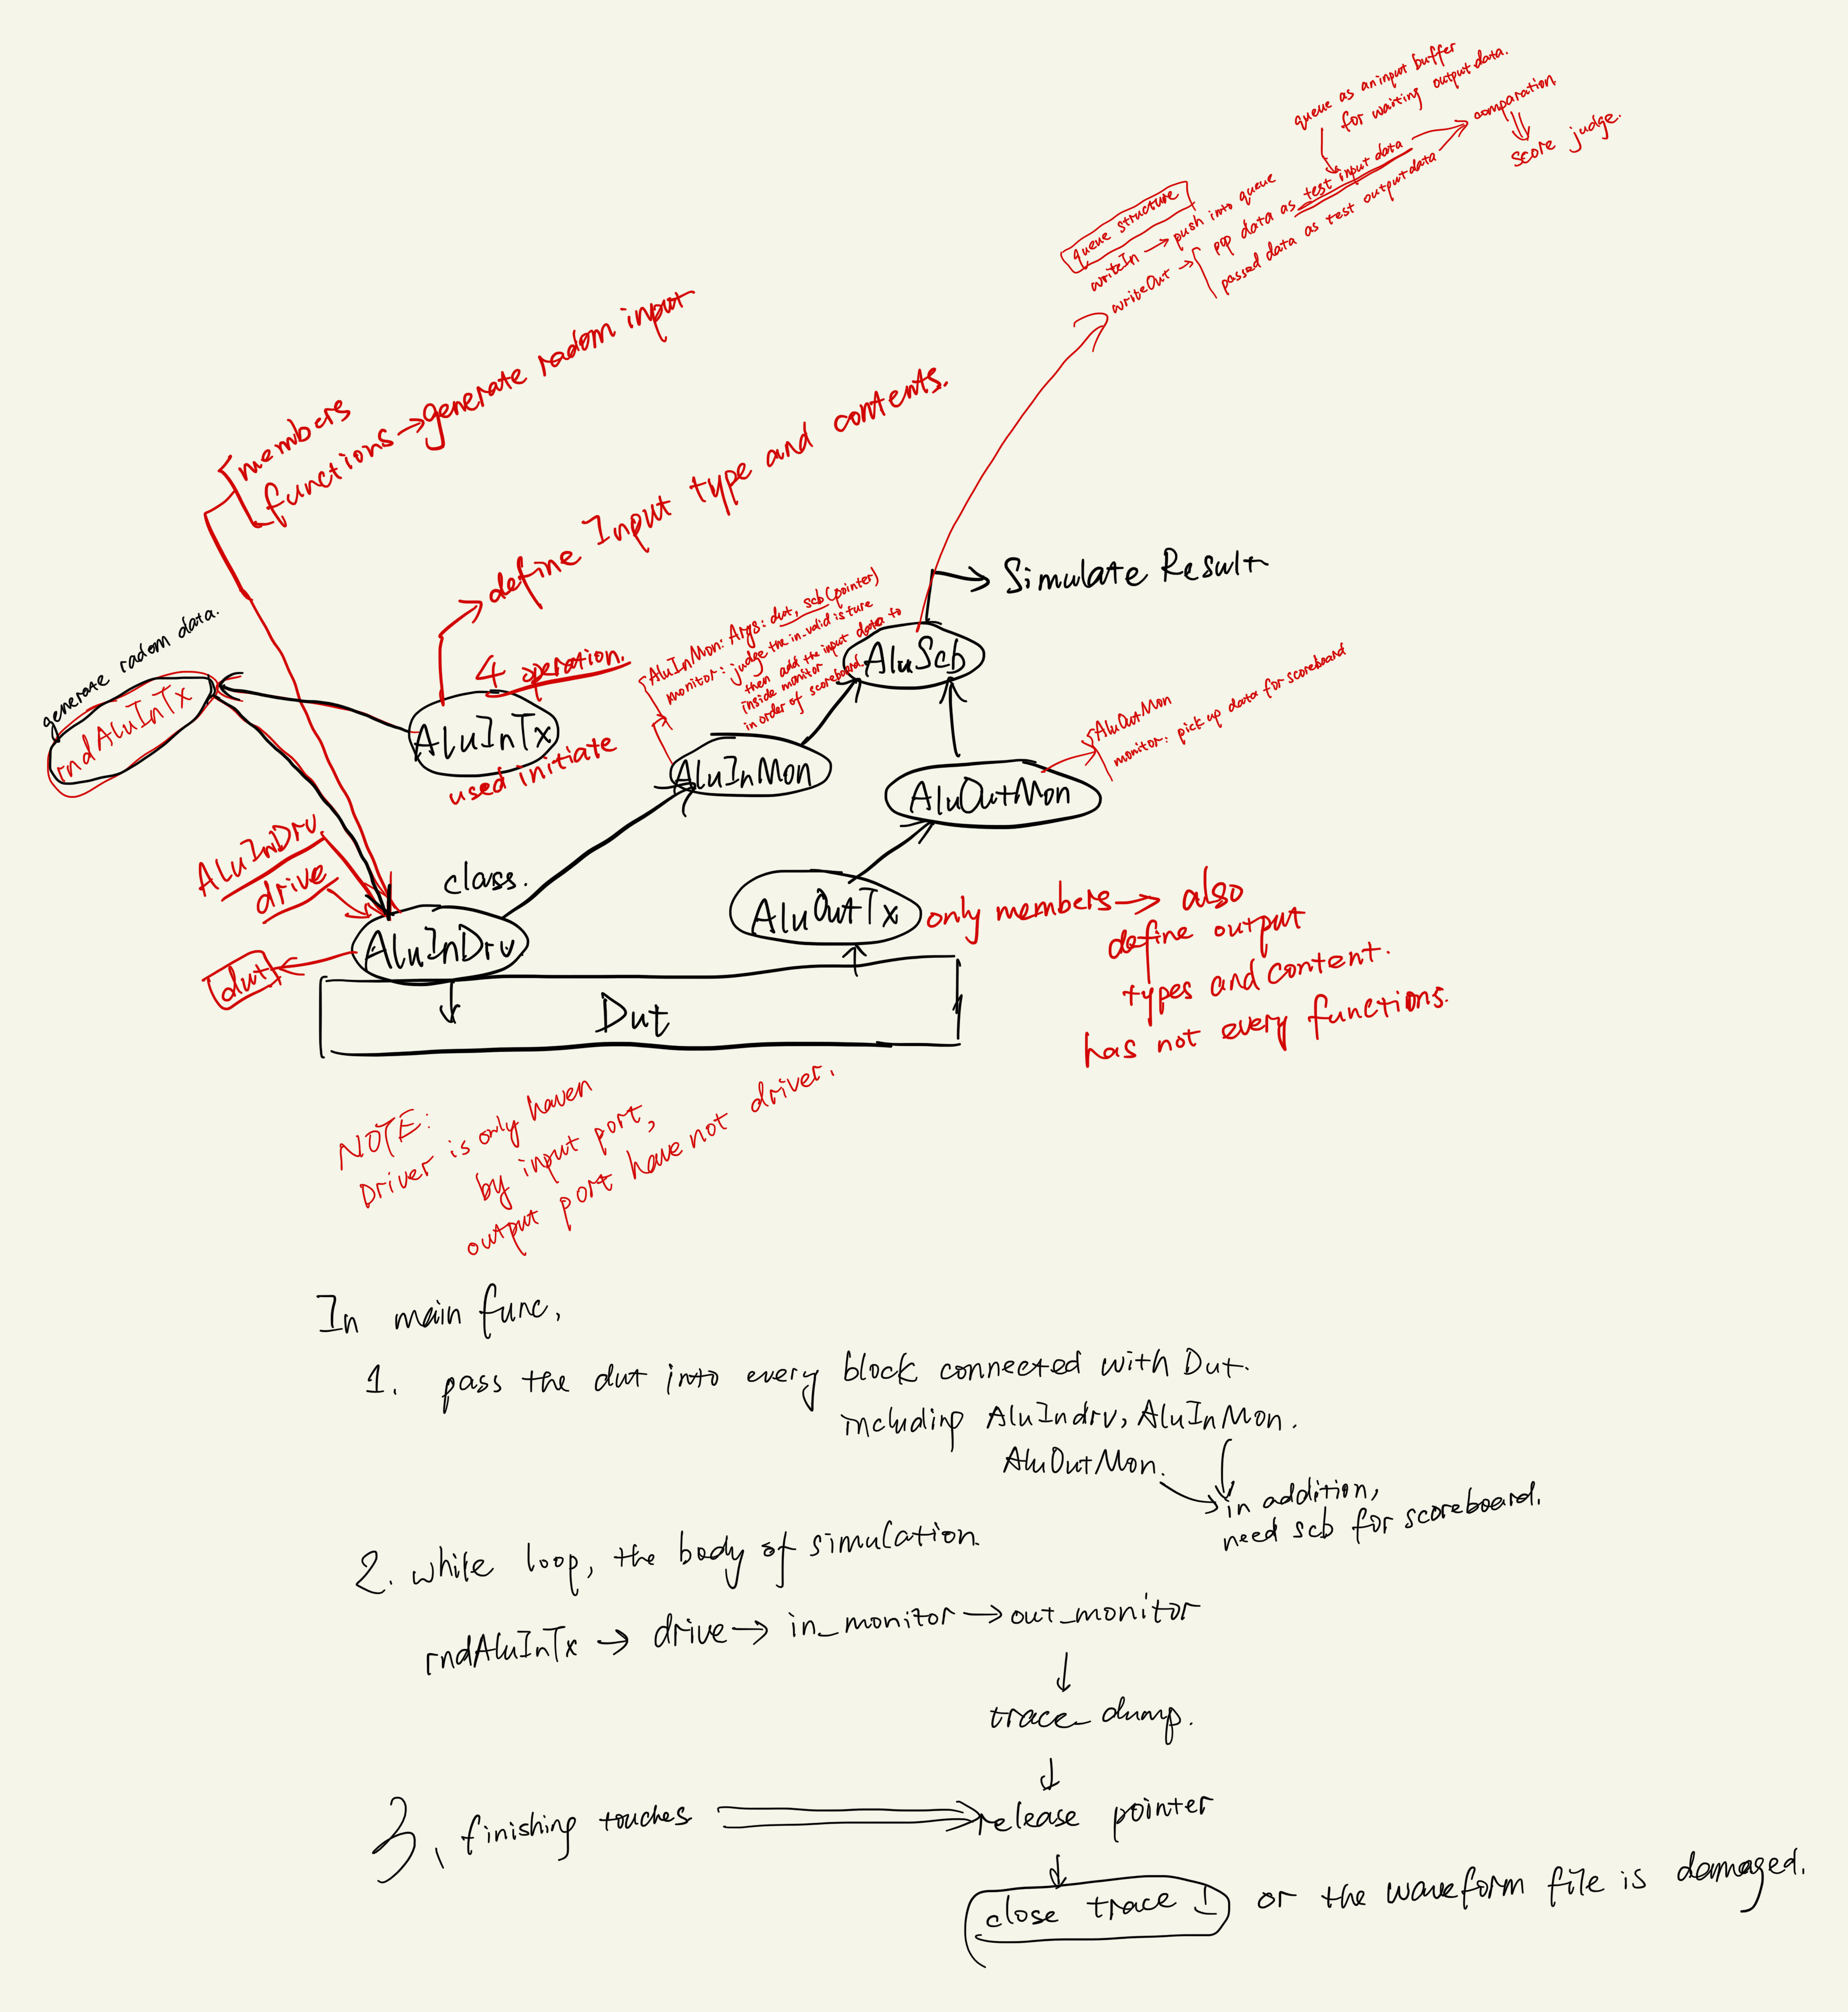 queue as an input buffer
for waiting output data.
comparation
score judge.
queue structure
writeIn → push into queue
writeOut → pop data as test input data
passed data as test output data
members
functions → generate radom input
define Input type and contents.
Simulate Result
4 operation.
AluInMon: Args: dut, scb (pointer)
monitor: judge the in_valid is ture
then add the input data to
inside monitor
in order of scoreboard.
AluScb
generate radom data.
rndAluInTx
AluInTx
used initiate
AluInMon
AluOutMon
AluOutMon
monitor: pick up data for scoreboard
AluInDrv
drive
class.
AluInDrv
dut
AluOutTx
only members → also
define output
types and content.
has not every functions.
Dut
NOTE:
Driver is only haven
by input port,
output port have not driver.
In main func,
1. pass the dut into every block connected with Dut.
including AluIndrv, AluInMon.
AluOutMon.
in addition,
need scb for scoreboard.
2. while loop, the body of simulation.
rndAluInTx → drive → in_monitor → out_monitor
↓
trace_dump.
↓
3, finishing touches ⇒ release pointer
↓
close trace ! or the waveform file is damaged.